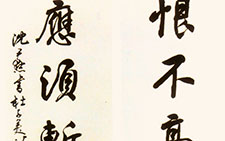 恨不高
應須斬
沈尹默書杜子美